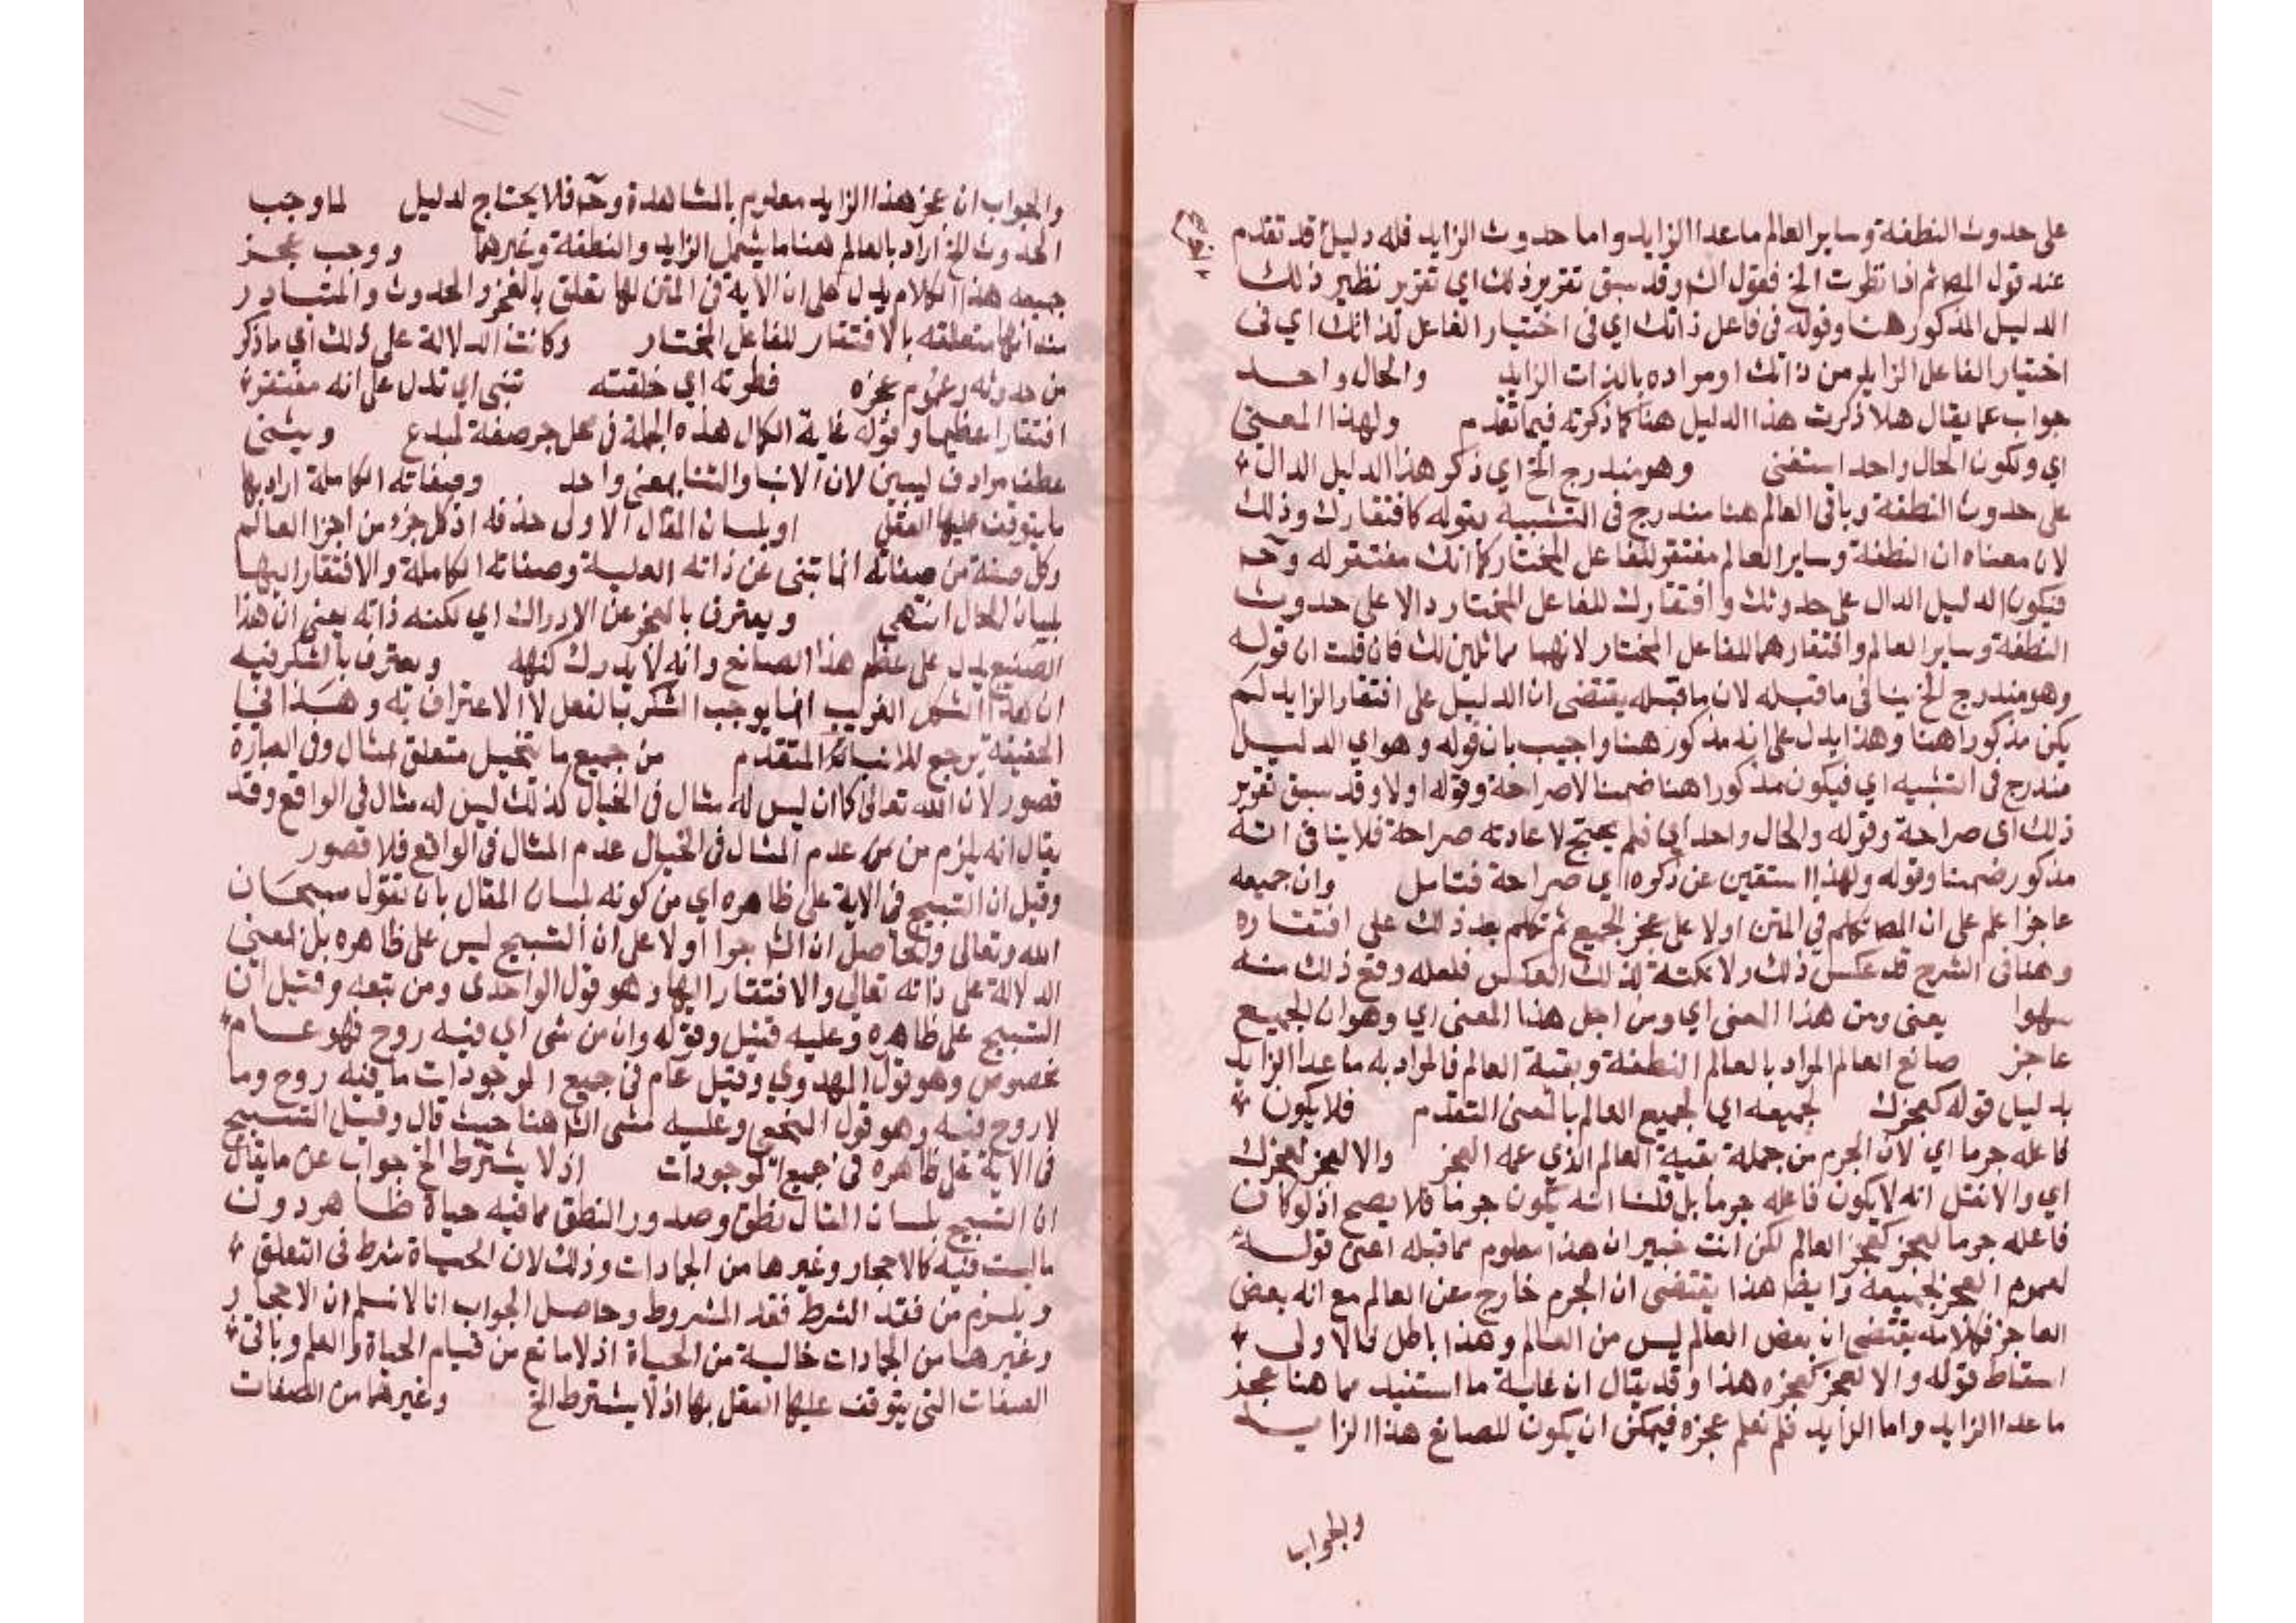 على حدوث النطفة وساير العالم ماعدا الزايد واما حدوث الزايد فله دليل قد تقدم
عند قول المص ثم اذا نظرت الخ فقول الش وقد سبق تقرير ذلك اي تقرير نظير ذلك
الدليل المذكور هنا وقوله في فاعل ذاتك اي في اختيار الفاعل لذاتك اي في
اختيار الفاعل الزايد من ذاتك او مراده بالذات الزايد والحال واحد
جواب عما يقال هلا ذكرت هذا الدليل هنا كما ذكرته فيما تقدم ولهذا المعنى
اي ولكون الحال واحد استغنى وهو مندرج الخ اي ذكر هذا الدليل الدال
على حدوث النطفة وباقي العالم هنا مندرج في التشبيه بقوله كافتقارك وذلك
لان معناه ان النطفة وساير العالم مفتقر للفاعل المختار كما انك مفتقر له وح
فيكون الدليل الدال على حدوثك وافتقارك للفاعل المختار دالا على حدوث
النطفة وساير العالم وافتقارهما للفاعل المختار لانهما مماثلين لك فان قلت ان قوله
وهو مندرج الخ ينافي ما قبله لان ما قبله يقتضى ان الدليل على افتقار الزايد لم
يكن مذكورا هنا وهذا يدل على انه مذكور هنا واجيب بان قوله وهو اي الدليل
مندرج في التشبيه اي فيكون مذكورا هنا ضمنا لا صراحة وقوله اولا وقد سبق تقرير
ذلك اي صراحة وقوله والحال واحد اي فلم يحتج لاعادته صراحة فلا ينافي انه
مذكور ضمنا وقوله ولهذا استغنى عن ذكره اي صراحة فتامل وان جميعه
عاجز اعلم على ان المص تكلم في المتن اولا على عجز الجميع ثم تكلم بعد ذلك على افتقاره
وهنا في الشرح قد عكس ذلك ولا نكتة لذلك العكس فلعله وقع ذلك منه
سهوا يعنى ومن هذا المعنى اي ومن اجل هذا المعنى اي وهو ان الجميع
عاجز صانع العالم المراد بالعالم النطفة وبقية العالم فالمراد به ماعدا الزايد
بدليل قوله كعجزك لجميعه اي لجميع العالم بالمعنى المتقدم فلا يكون
فاعله جرما اي لان الجرم من جملة بقية العالم الذي عمه العجز والا لعجز لعجزك
اي والا نقل انه لا يكون فاعله جرما بل قلنا انه يكون جرما فلا يصح اذ لو كان
فاعله جرما لعجز كعجز العالم لكن انت خبير ان هذا معلوم مما قبله اعنى قوله
لعموم العجز لجميعه وايضا هذا يقتضى ان الجرم خارج عن العالم مع انه بعض
العاجز فكلامه يقتضى ان بعض العالم ليس من العالم وهذا باطل فالاولى
اسقاط قوله والا لعجز كعجزه هذا وقد يقال ان غاية ما استفيد مما هنا عجز
ماعدا الزايد واما الزايد فلم نعلم عجزه فيمكن ان يكون للصانع هذا الزايد
والجواب
والجواب ان عجز هذا الزايد معلوم بالمشاهدة وح فلا يحتاج لدليل لما وجب
الحدوث الخ اراد بالعالم هنا ما يشمل الزايد والنطفة وغيرهما ووجب عجز
جميعه هذا الكلام يدل على ان الاية في المتن لها تعلق بالعجز والحدوث والمتبادر
منه انها متعلقه بالافتقار للفاعل المختار وكانت الدلالة على ذلك اي ما ذكر
من حدوثه وعموم عجزه فطرته اي خلقته تنبى اي تدل على انه مفتقر
افتقارا عظيما وقوله غاية الكمال هذه الجملة في محل جر صفة لمبدع ويثنى
عطف مرادف ليبين لان الانبا والثنا بمعنى واحد وصفاته الكاملة اراد بها
ما يتوقف عليها الفعل او بلسان المقال الاولى حذفه اذ كل جزء من اجزا العالم
وكل صفة من صفاته انما تنبى عن ذاته العلية وصفاته الكاملة والافتقار اليها
لبيان الحال انتهى ويعترف بالعجز عن الادراك اي لكنه ذاته يعنى ان هذا
الصنيع يدل على عظم هذا الصانع وانه لا يدرك كنهه ويعترف بالشكر فيه
ان هذا الشكل الغريب انما يوجب الشكر بالفعل لا الاعتراف به وهذا في
الحقيقة يرجع للانباء المتقدم من جميع ما تخيل متعلق لمثال وفي العبارة
قصور لان الله تعالى كما ان ليس له مثال في الخيال كذلك ليس له مثال في الواقع وقد
يقال انه يلزم من عدم المثال في الخيال عدم المثال في الواقع فلا قصور
وقيل ان التسبيح في الاية على ظاهره اي من كونه بلسان المقال بان تقول سبحان
الله وتعالى والحاصل ان الش جوا اولا على ان التسبيح ليس على ظاهره بل بمعنى
الدلالة على ذاته تعالى والافتقار اليها وهو قول الواحدى ومن تبعه وقيل ان
التسبيح على ظاهره وعليه فقيل وقوله وان من شى اي فيه روح فهو عام
مخصوص وهو قول المهدوي وقيل عام في جميع الموجودات ما فيه روح وما
لا روح فيه وهو قول النخعي وعليه مشى الش هنا حيث قال وقيل التسبيح
في الاية على ظاهره في جميع الموجودات اذ لا يشترط الخ جواب عن ما يقال
ان التسبيح بلسان المقال نطق وصدور النطق مما فيه حياة ظاهر دون
ما ليست فيه كالاحجار وغيرها من الجمادات وذلك لان الحياة شرط في التعلق
ويلزم من فقد الشرط فقد المشروط وحاصل الجواب انا لا نسلم ان الاحجار
وغيرها من الجمادات خالية من الحياة اذ لا مانع من قيام الحياة والعلم وباقي
الصفات التى يتوقف عليها الفعل بها اذ لا يشترط الخ وغيرهما من الصفات